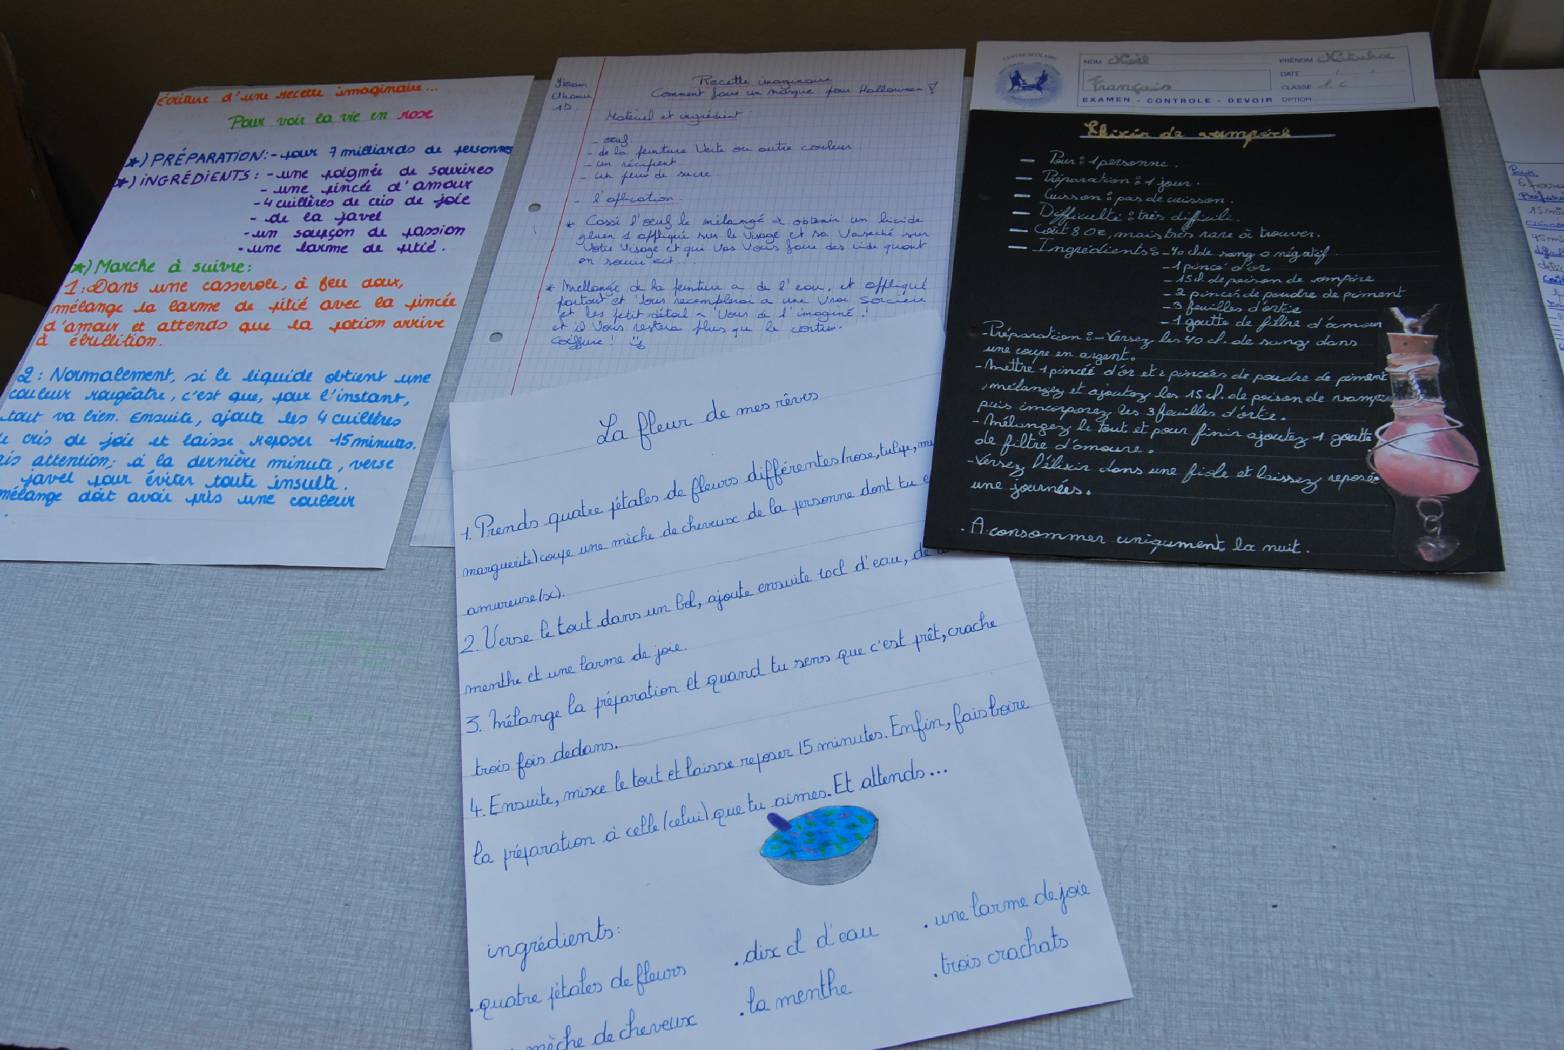 Écriture d'une recette imaginaire...
Pour voir la vie en rose
*) PRÉPARATION: - pour 7 milliards de personnes
*) iNGRÉDIENTS: - une poignée de sourires
- une pincée d'amour
- 4 cuillères de cris de joie
- de la javel
- un soupçon de passion
- une larme de pitié.
*) Marche à suivre:
1: Dans une casserole, à feu doux,
mélange la larme de pitié avec la pincée
d'amour et attends que la potion arrive
à ébullition.
2: Normalement, si le liquide obtient une
couleur rougeâtre, c'est que, pour l'instant,
tout va bien. Ensuite, ajoute les 4 cuillères
cris de joie et laisse reposer 15 minutes.
attention; à la dernière minute, verse
javel pour éviter toute insulte.
mélange doit avoir pris une couleur
1D.
Recette imaginaire
Comment faire un masque pour Halloween ?
Matériel et ingrédient
- oeuf
- de la peinture Verte ou autre couleur
- un récipient
- un peu de sucre
- l'aplication
* Cassé l'oeuf le mélangé
Votre Visage et qui Vas Vous faire des ride quant
on
* Mellange de la peinture a de l'eau, et affliqué
partout et Vous
et les petit détail a Vous de l'imaginé !
et il Vous restera plus que le
Coiffure !
CENTRE SCOLAIRE
NOM Noël
PRÉNOM
Français
DATE
CLASSE 1 C
EXAMEN - CONTROLE - DEVOIR OPTION
Elixir de vampire
- Pour : 1 personne.
- Préparation : 1 jour.
- Cuisson : pas de cuisson.
- Difficulté : très difficile.
- Coût 80€, mais très rare à trouver.
- Ingrédients : - 40 cl de sang o négatif
- 1 pincé d'or
- 15 cl de poison de vampire
- 2 pincés de poudre de piment
- 3 feuilles d'ortie
- 1 goutte de filtre d'amour
- Préparation : - Versez les 40 cl. de sang dans
une coupe en argent.
- Mettre 1 pincée d'or et 2 pincées de poudre de piment
, mélangez et ajoutez les 15 cl. de poison de vampire
puis incorporez les 3 feuilles d'ortie.
- Mélangez le tout et pour finir ajoutez 1 goutte
de filtre d'amoure.
- Versez l'élixir dans une fiole et laissez reposée
une journées.
. A consommer uniquement la nuit.
La fleur de mes rêves
1. Prends quatre pétales de fleurs différentes (rose, tulipe,
marguerite) coupe une mèche de cheveux de la personne dont tu
amureuse(x).
2. Verse le tout dans un bol, ajoute ensuite 10cl d'eau, de
menthe et une larme de joie.
3. Mélange la préparation et quand tu sens que c'est prêt, crache
trois fois dedans.
4. Ensuite, mixe le tout et laisse reposer 15 minutes. Enfin, fais boire
la préparation à celle (celui) que tu aimes. Et attends...
ingrédients:
. quatre pétales de fleurs
. dix cl d'eau
. une larme de joie
mèche de cheveux
. la menthe
. trois crachats